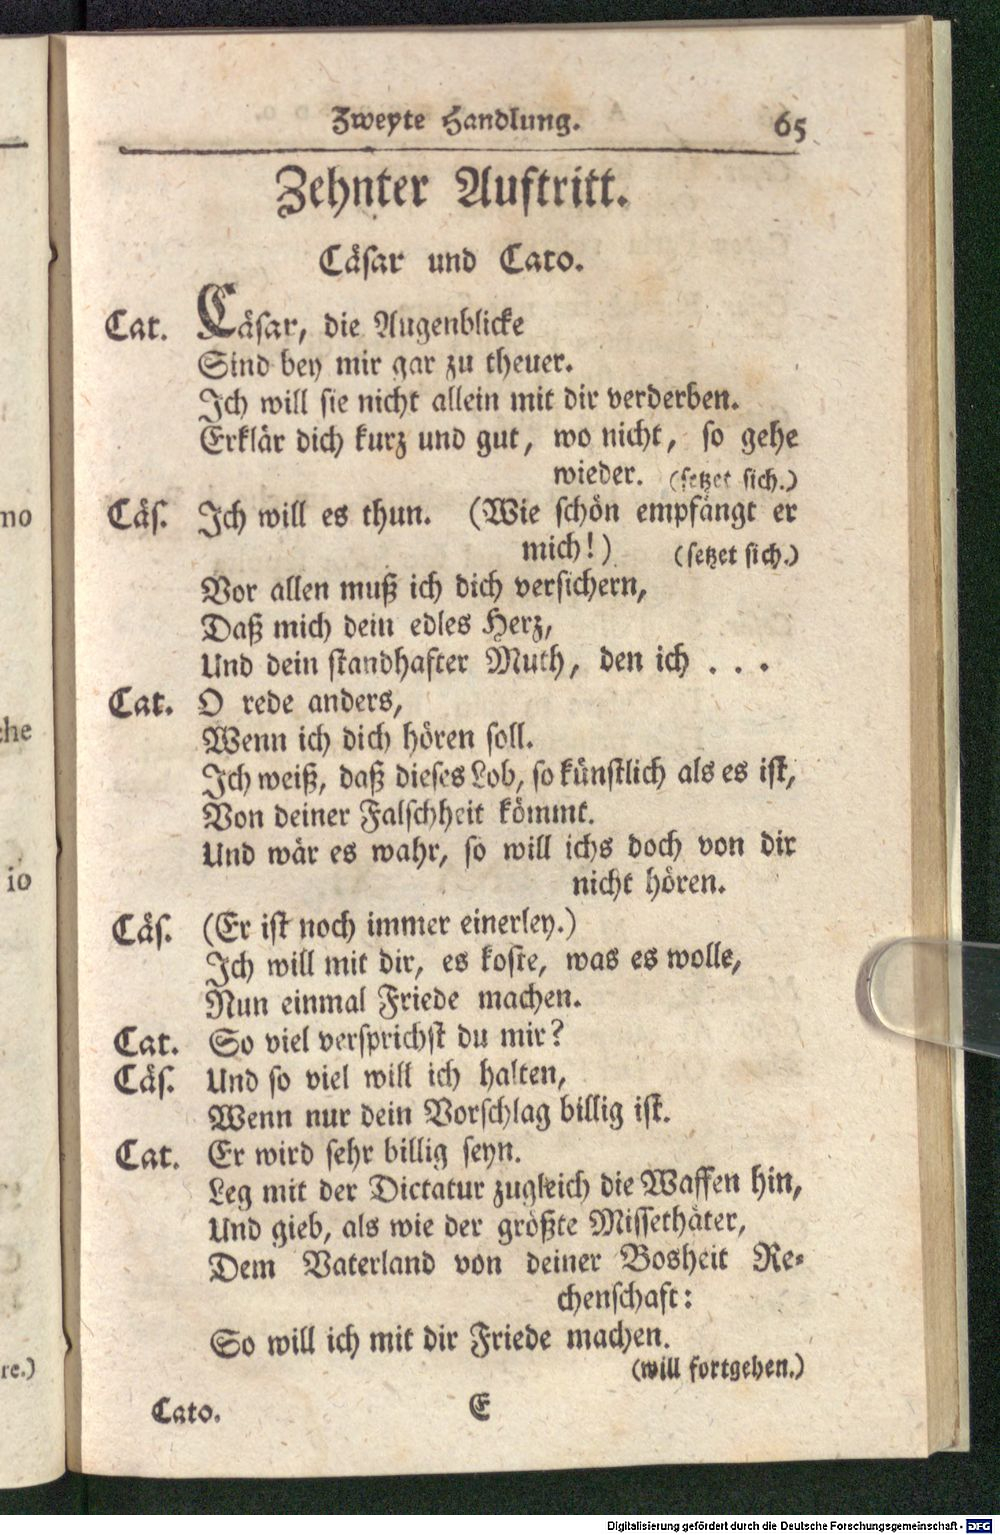 Zweyte Handlung. 65
Zehnter Auftritt.
Cäsar und Cato.
Cat. Cäsar, die Augenblicke
Sind bey mir gar zu theuer.
Ich will sie nicht allein mit dir verderben.
Erklär dich kurz und gut, wo nicht, so gehe
wieder. (setzet sich.)
Cäs. Ich will es thun. (Wie schön empfängt er
mich!) (setzet sich.)
Vor allen muß ich dich versichern,
Daß mich dein edles Herz,
Und dein standhafter Muth, den ich . . .
Cat. O rede anders,
Wenn ich dich hören soll.
Ich weiß, daß dieses Lob, so künstlich als es ist,
Von deiner Falschheit kömmt.
Und wär es wahr, so will ichs doch von dir
nicht hören.
Cäs. (Er ist noch immer einerley.)
Ich will mit dir, es koste, was es wolle,
Nun einmal Friede machen.
Cat. So viel versprichst du mir?
Cäs. Und so viel will ich halten,
Wenn nur dein Vorschlag billig ist.
Cat. Er wird sehr billig seyn.
Leg mit der Dictatur zugleich die Waffen hin,
Und gieb, als wie der größte Missethäter,
Dem Vaterland von deiner Bosheit Re-
chenschaft:
So will ich mit dir Friede machen.
(will fortgehen.)
Cato. E
mo
che
io
re.)
Digitalisierung gefördert durch die Deutsche Forschungsgemeinschaft - DFG